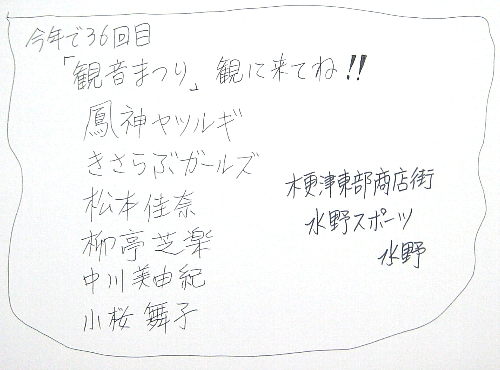 今年で36回目
「観音まつり」観に来てね!!
鳳神ヤツルギ
きさらぶガールズ
松本佳奈
柳亭芝楽
中川美由紀
小桜舞子
木更津東部商店街
水野スポーツ
水野